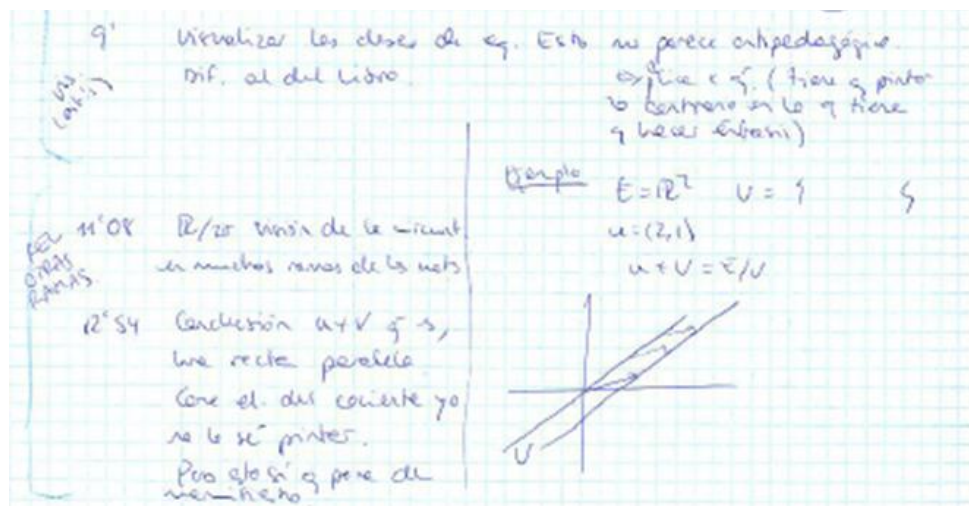 9' Visualizar las clases de eq. Esto no parece antipedagógico.
Dif. al del libro.
explica q. (tiene q pintar
lo contrario en lo q tiene
q hacer)
Ejemplo
E = ℝ² U = { }
u = (2,1)
u + U = E/U
REL
OTRAS
RAMAS
11'08 visión de la
en muchas ramas de las mats
12'54 Conclusión u+V q es,
una recta paralela
Como el. del cociente yo
no lo sé pintar.
Pero esto sí q pone de
manifiesto
U